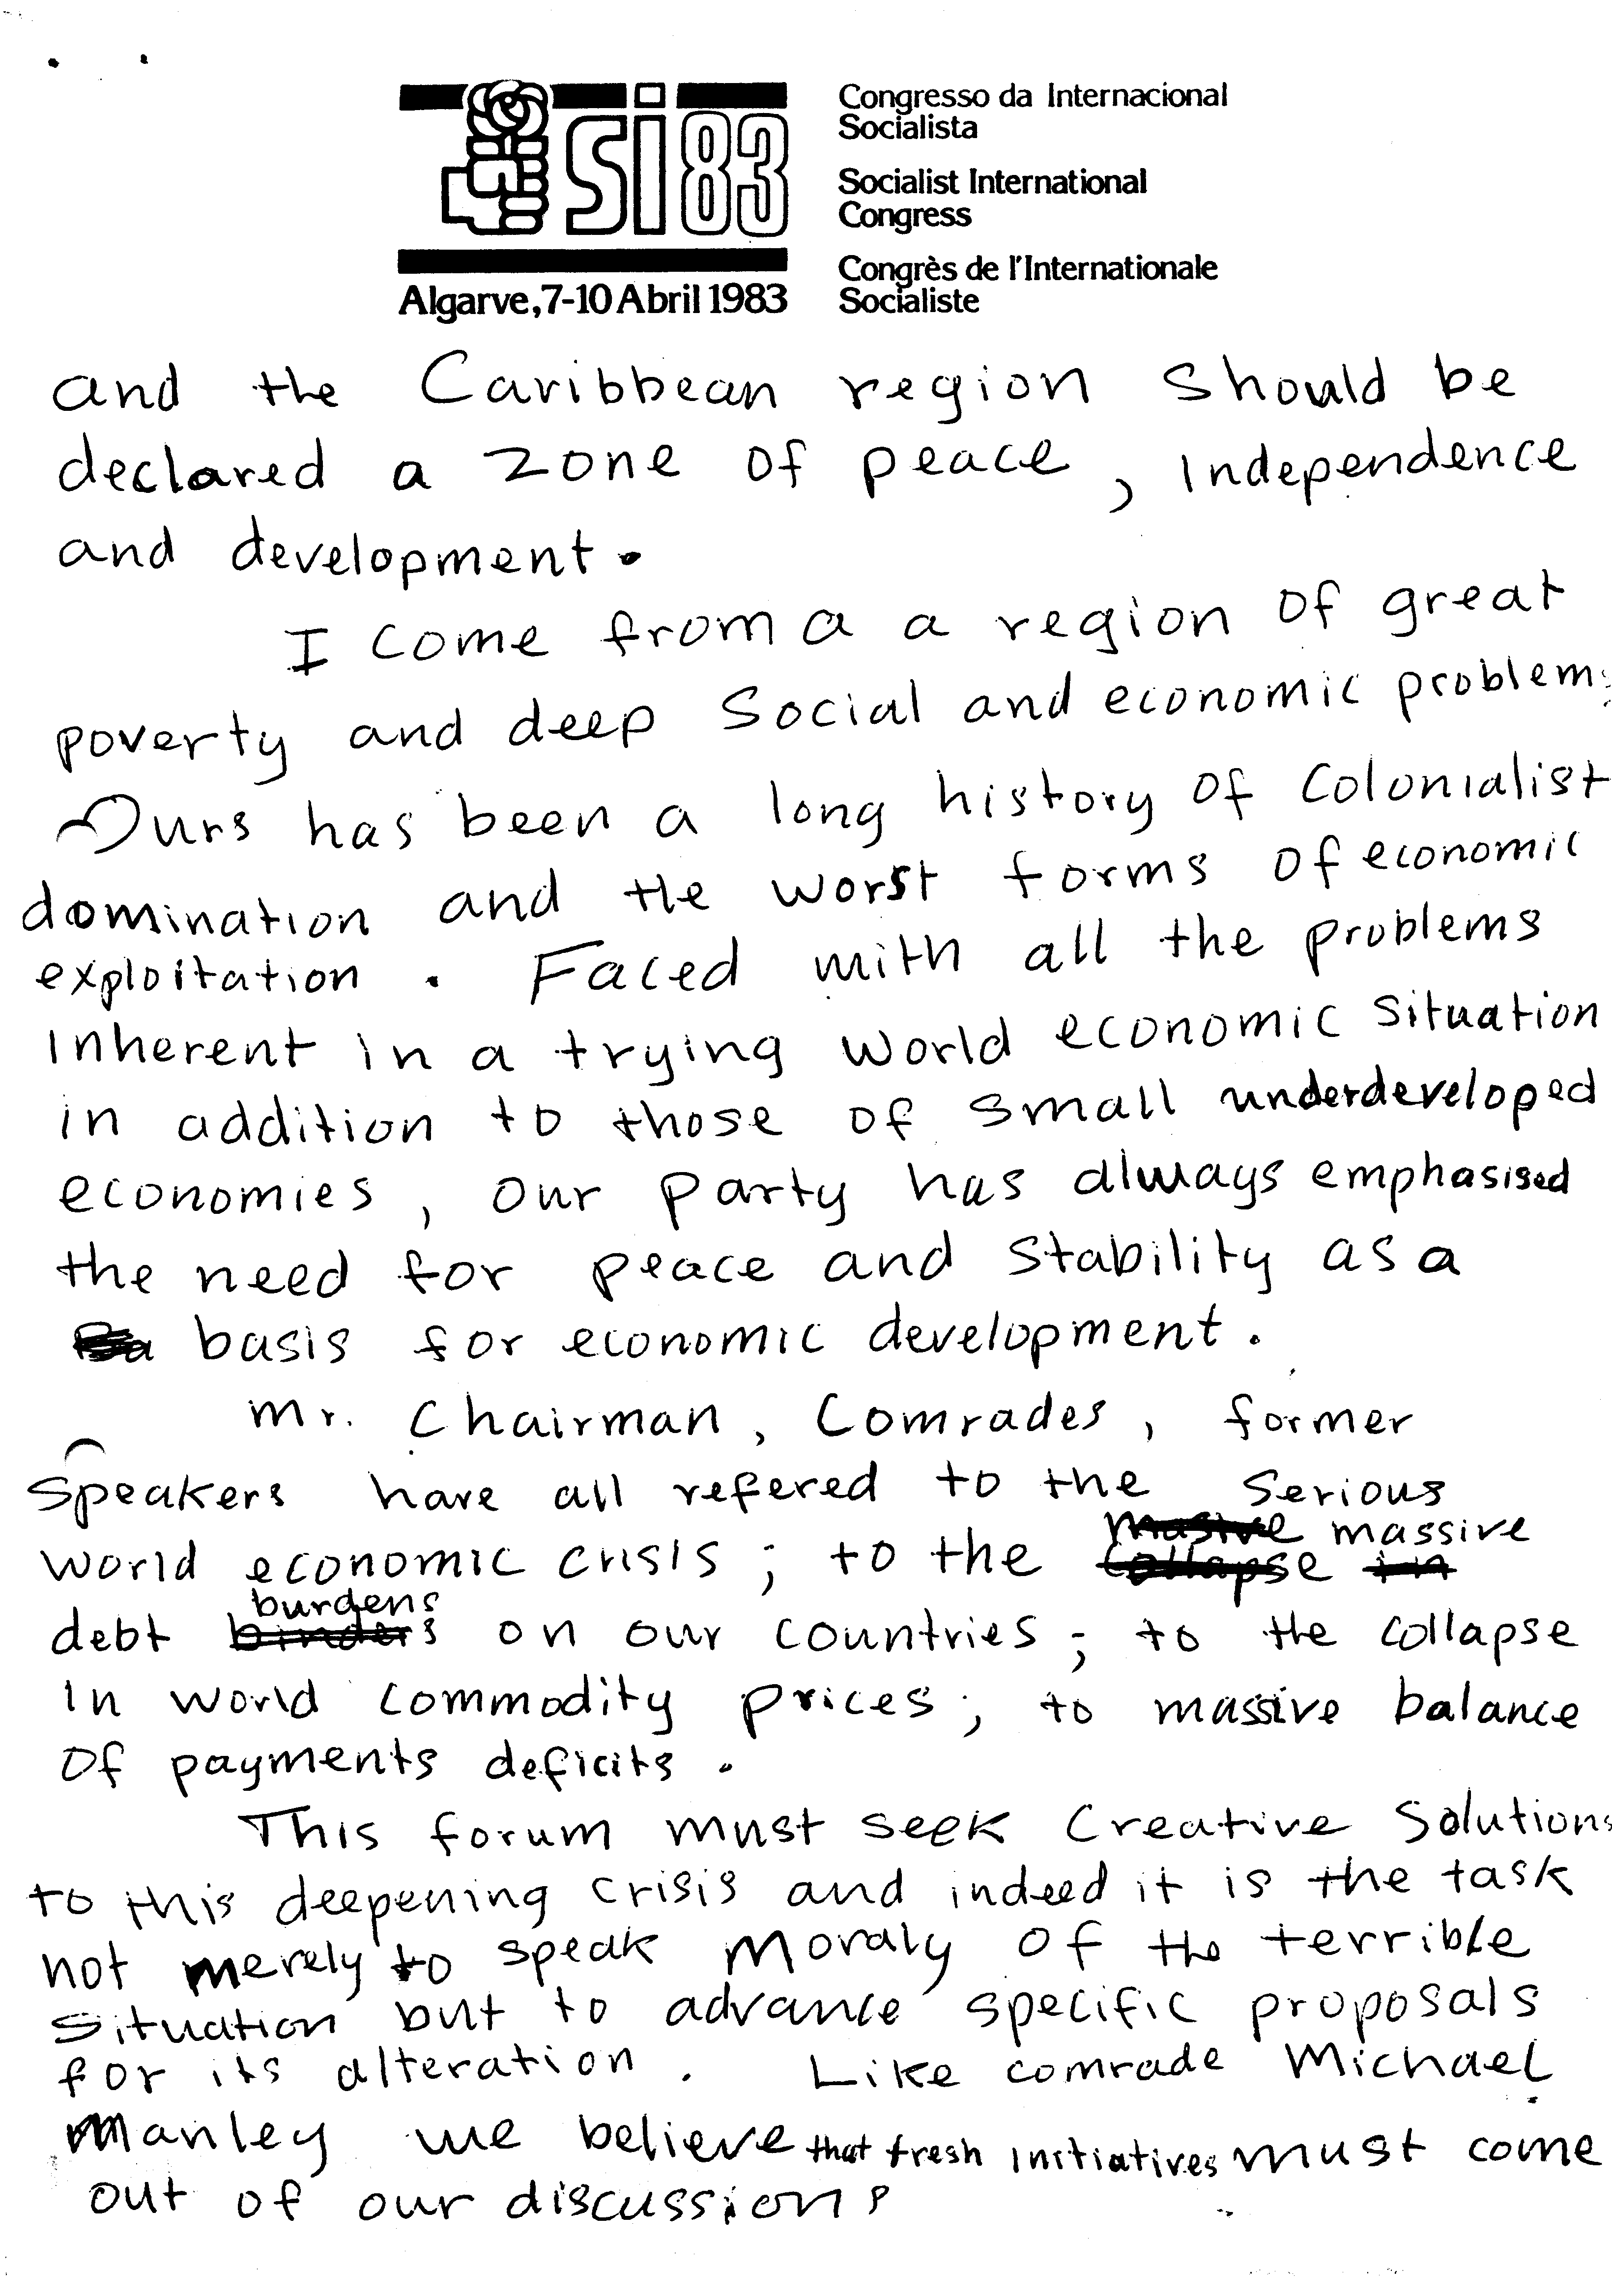 SI 83
Algarve, 7-10 Abril 1983
Congresso da Internacional
Socialista
Socialist International
Congress
Congrès de l'Internationale
Socialiste
and the Caribbean region should be
declared a zone of peace, Independence
and development.
I come from a a region of great
poverty and deep Social and economic problems
Ours has been a long history of Colonialist
domination and the worst forms of economic
exploitation. Faced with all the problems
Inherent in a trying world economic situation
in addition to those of small underdeveloped
economies, our party has always emphasised
the need for peace and stability as a
basis for economic development.
Mr. Chairman, Comrades, former
Speakers have all refered to the serious
world economic crisis; to the massive collapse in massive
debt binders burdens on our countries; to the collapse
In world commodity prices; to massive balance
Of payments deficits.
This forum must seek Creative Solutions
to this deepening crisis and indeed it is the task
not merely to speak moraly of the terrible
situation but to advance specific proposals
for its alteration. Like comrade Michael
Manley we believe that fresh Initiatives must come
out of our discussions